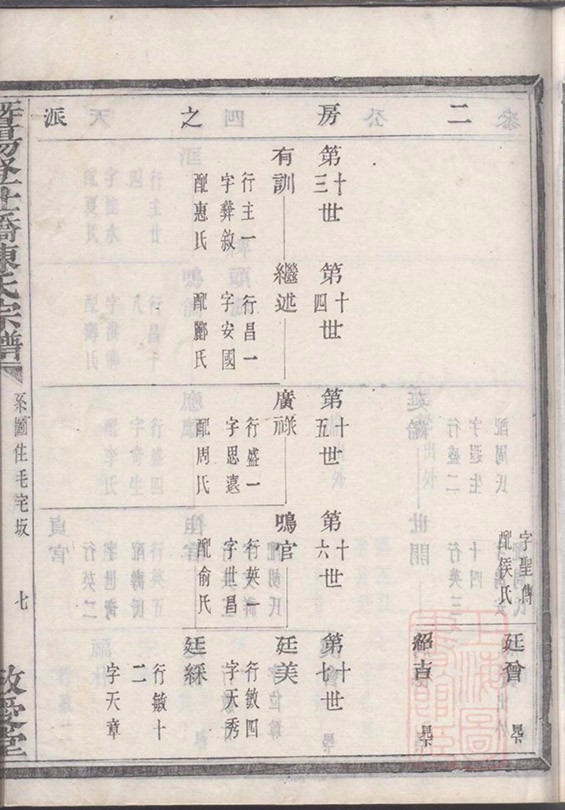 二房之派
字聖傳
配侯氏
廷曾
紹吉
第十三世
第十四世
第十五世
第十六世
第十七世
有訓
繼述
廣祿
鳴官
廷美
行主一
字彝敘
配惠氏
行昌一
字安國
配酈氏
行盛一
字思遠
配周氏
行英一
字世昌
配俞氏
行敏四
字天秀
廷綵
行敏十二
字天章
暨陽
橋陳氏宗譜
系圖住毛宅坂
七
敘愛堂